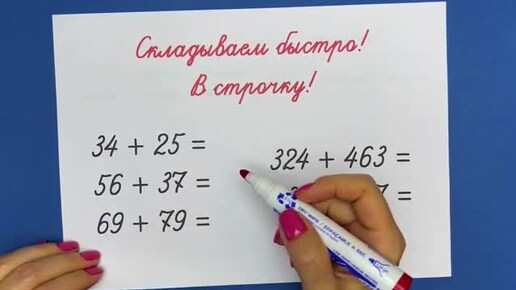 Складываем быстро!
В строчку!
34 + 25 =
56 + 37 =
69 + 79 =
324 + 463 =